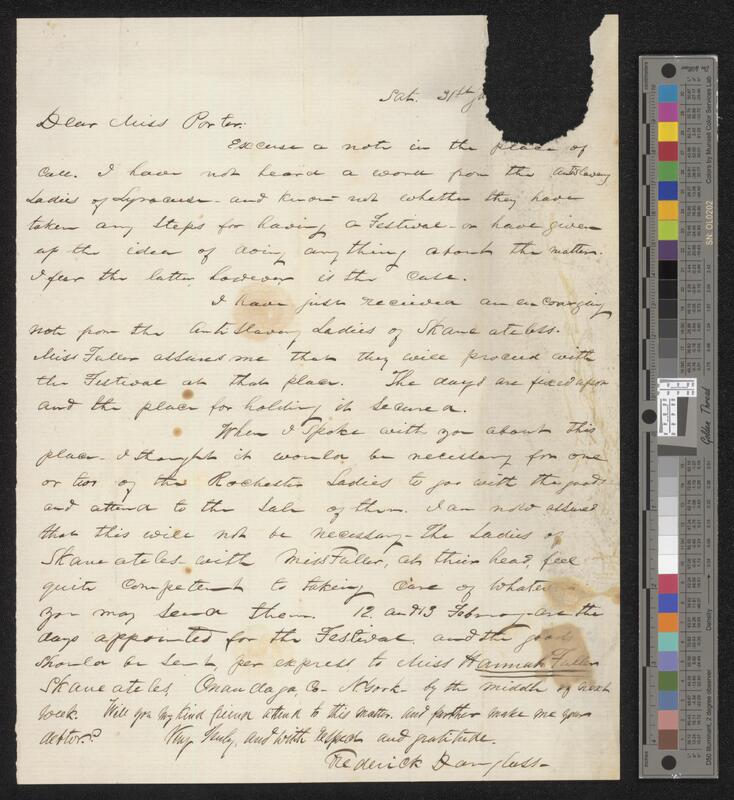 Sat. 31st
Dear Miss Porter.
Excuse a note in the place of
call. I have not heard a word from the Antislavery
Ladies of Syracuse - and know not whether they have
taken any steps for having a Festival - or have given
up the idea of doing anything about the matter.
I fear the latter, however is the case.
I have just received an encouraging
note from the Anti Slavery Ladies of Skaneateless.
Miss Fuller assures me that they will proceed with
the Festival at that place. The days are fixed upon
and the place for holding it secured.
When I spoke with you about this
place - I thought it would be necessary for one
or two of the Rochester Ladies to go with the goods
and attend to the sale of them. I am now assured
that this will not be necessary - The Ladies of
Skaneateles with Miss Fuller, at their head, feel
quite competent to taking care of whatever
you may send them. 12. and 13 February are the
days appointed for the Festival, and the goods
should be sent, per express to Miss Hannah Fuller
Skaneateles Onondaga, Co - N York - by the middle of next
week. Will you my kind friend attend to this matter. and further make me your
debtor.? Very truly, and with respect and gratitude.
Frederick Douglass -